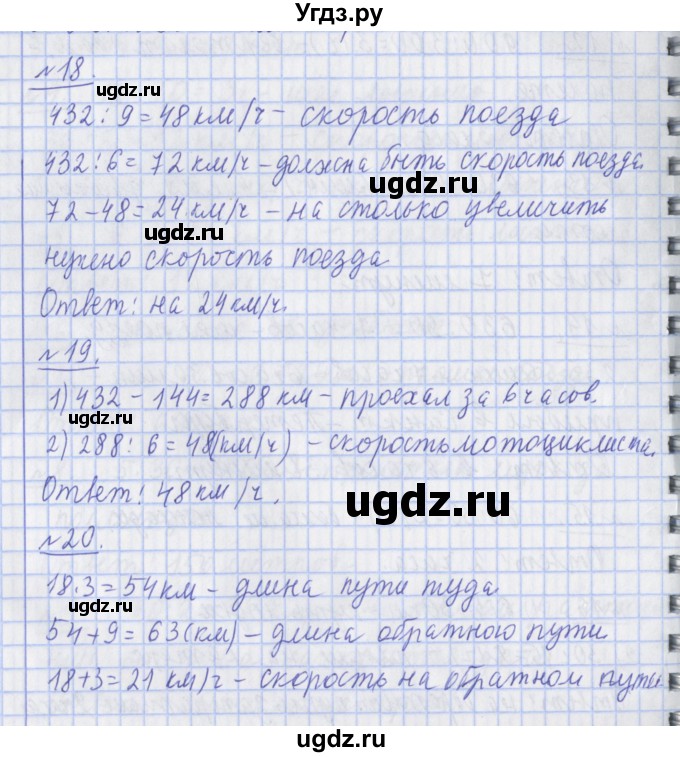 Угдз.ру
№18.
ugdz.ru
432 : 9 = 48 км/ч - скорость поезда
432 : 6 = 72 км/ч - должна быть скорость поезда.
ugdz.ru
72 - 48 = 24 км/ч - на столько увеличить
ugdz.ru
нужно скорость поезда
Ответ: на 24 км/ч.
ugdz.ru
№19.
1) 432 - 144 = 288 км - проехал за 6 часов.
ugdz.ru
2) 288 : 6 = 48 (км/ч) - скорость мотоциклиста.
Ответ: 48 км/ч.
ugdz.ru
№20.
18·3 = 54 км - длина пути туда
ugdz.ru
54 + 9 = 63 (км) - длина обратного пути
18 + 3 = 21 км/ч - скорость на обратном пути
ugdz.ru
ugdz.ru